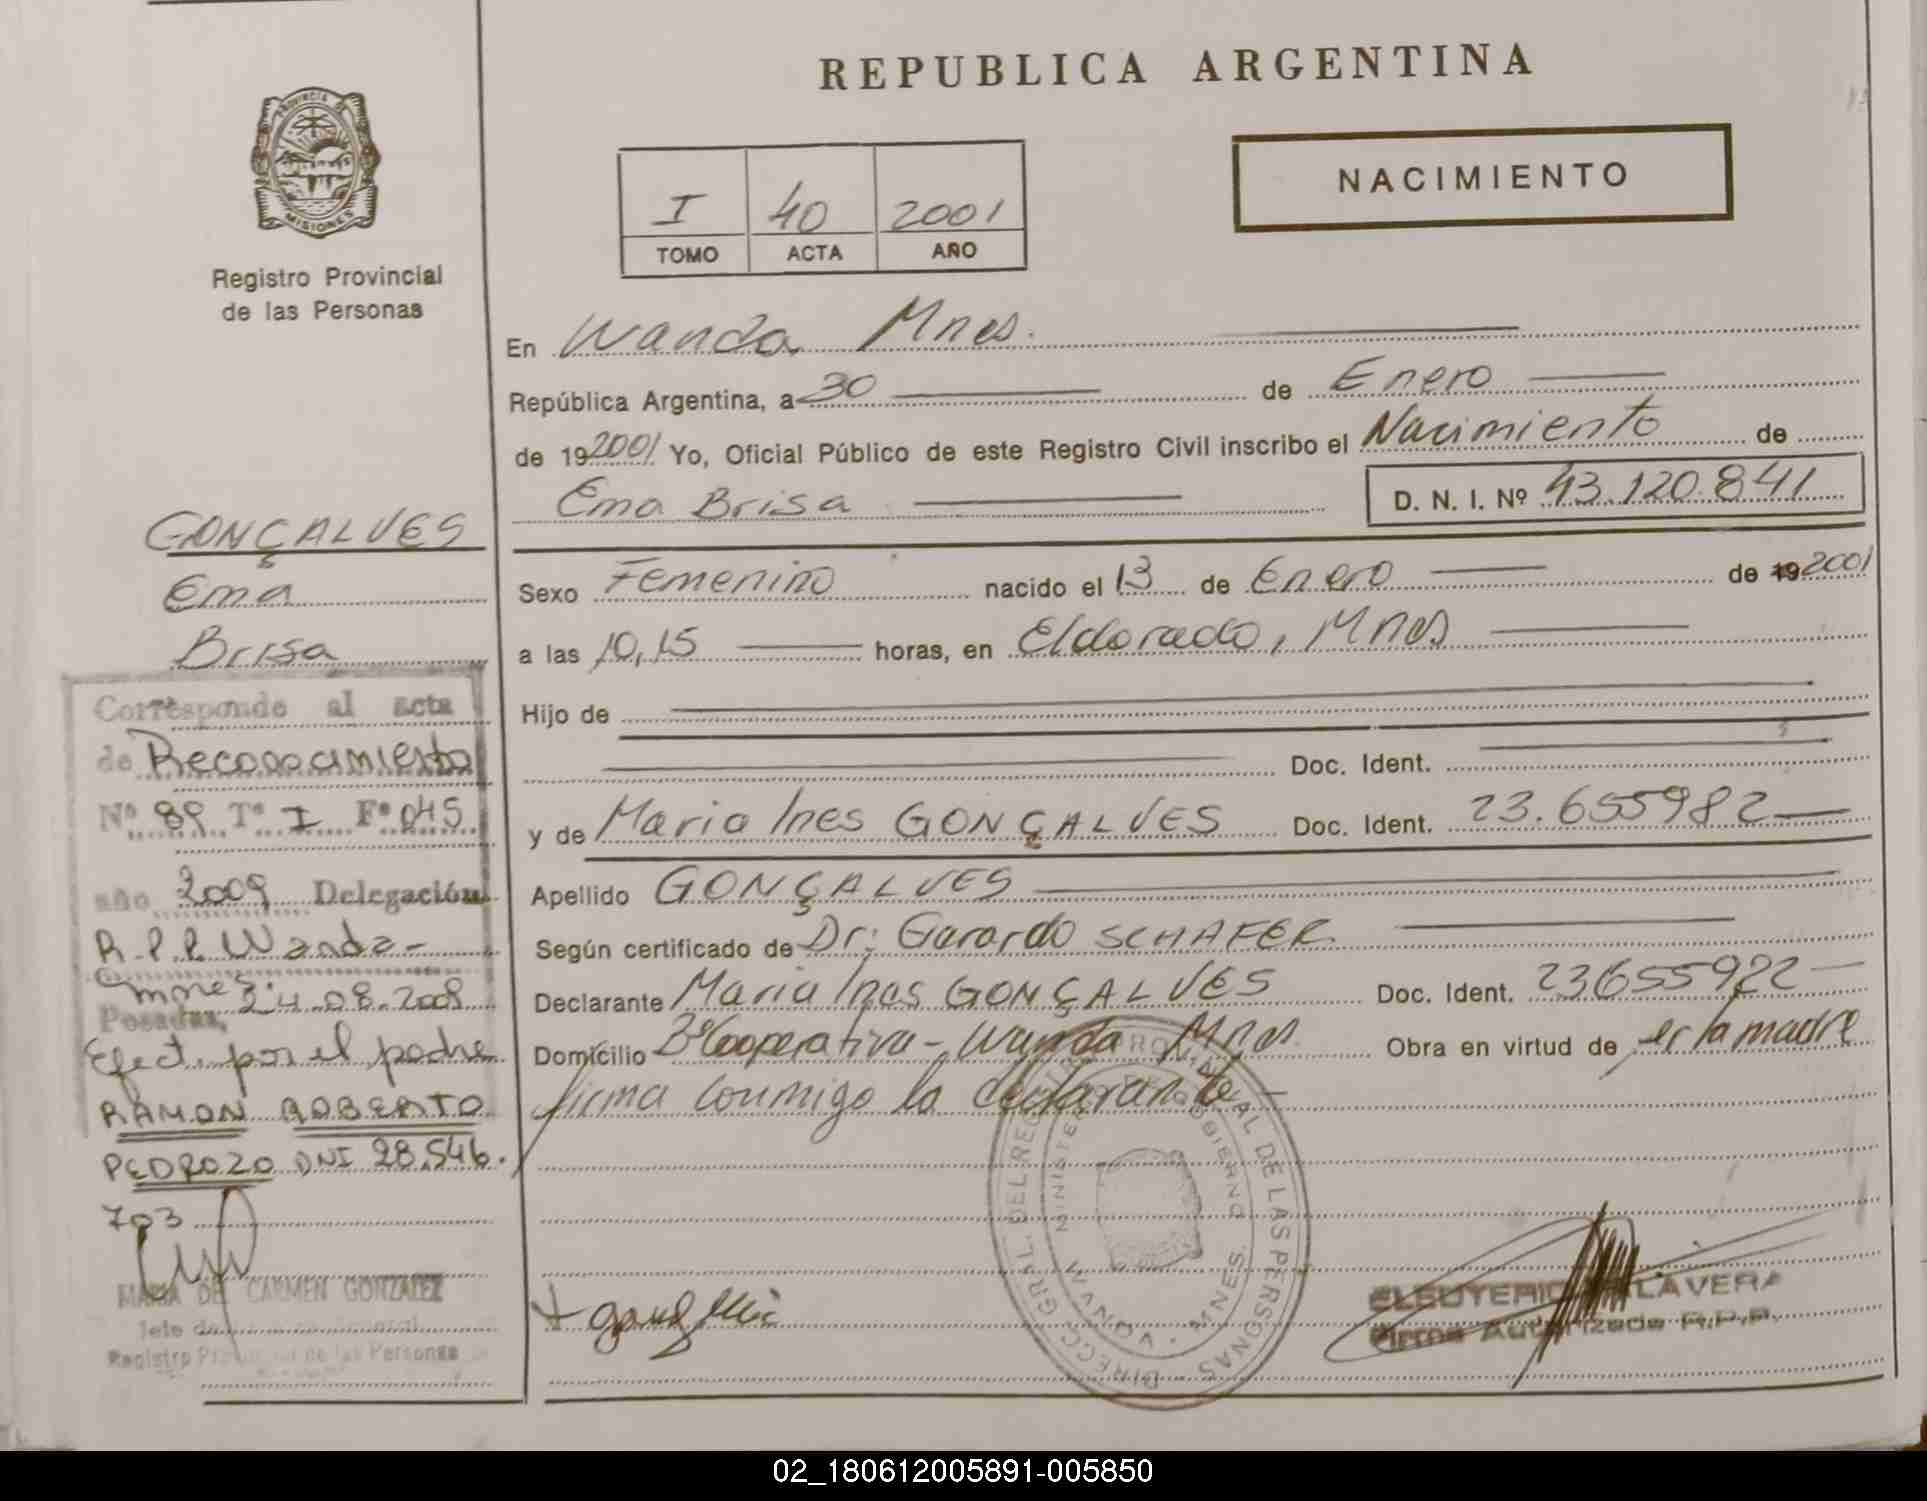 REPUBLICA ARGENTINA
PROVINCIA DE
MISIONES
Registro Provincial
de las Personas
NACIMIENTO
I 40 2001
TOMO ACTA AÑO
En Wanda Mnes.
República Argentina, a 30 de Enero
de 19 2001 Yo, Oficial Público de este Registro Civil inscribo el Nacimiento de
Ema Brisa D. N. I. Nº 43.120.841
Sexo Femenino nacido el 13 de Enero de 19 2001
a las 10,15 horas, en Eldorado, Mnes
Hijo de
Doc. Ident.
y de Maria Ines GONÇALVES Doc. Ident. 23.655982
Apellido GONÇALVES
Según certificado de Dr: Gerardo SCHAFER
Declarante Maria Ines GONÇALVES Doc. Ident. 23655922
Domicilio Bº Cooperativa - Wanda Mnes. Obra en virtud de ser la madre
firma conmigo la declarante
GONÇALVES
Ema
Brisa
Corresponde al acta
de Reconocimiento
Nº 89 Tº I Fº 045
año 2009 Delegación
R.P.P. Wanda-
Mnes.
Posadas, 24.08.2009
Efect. por el padre
RAMON ROBERTO
PEDROZO DNI 28.546.
703
MARIA DEL CARMEN GONZALEZ
Jefe de
Registro Provincial de las Personas
DIRECC. GRAL. DEL REG. PROVINCIAL DE LAS PERSONAS
MINISTERIO DE GOBIERNO
WANDA - MNES.
ELEUTERIO LAVERA
Firma Autorizada R.P.P.
02_180612005891-005850